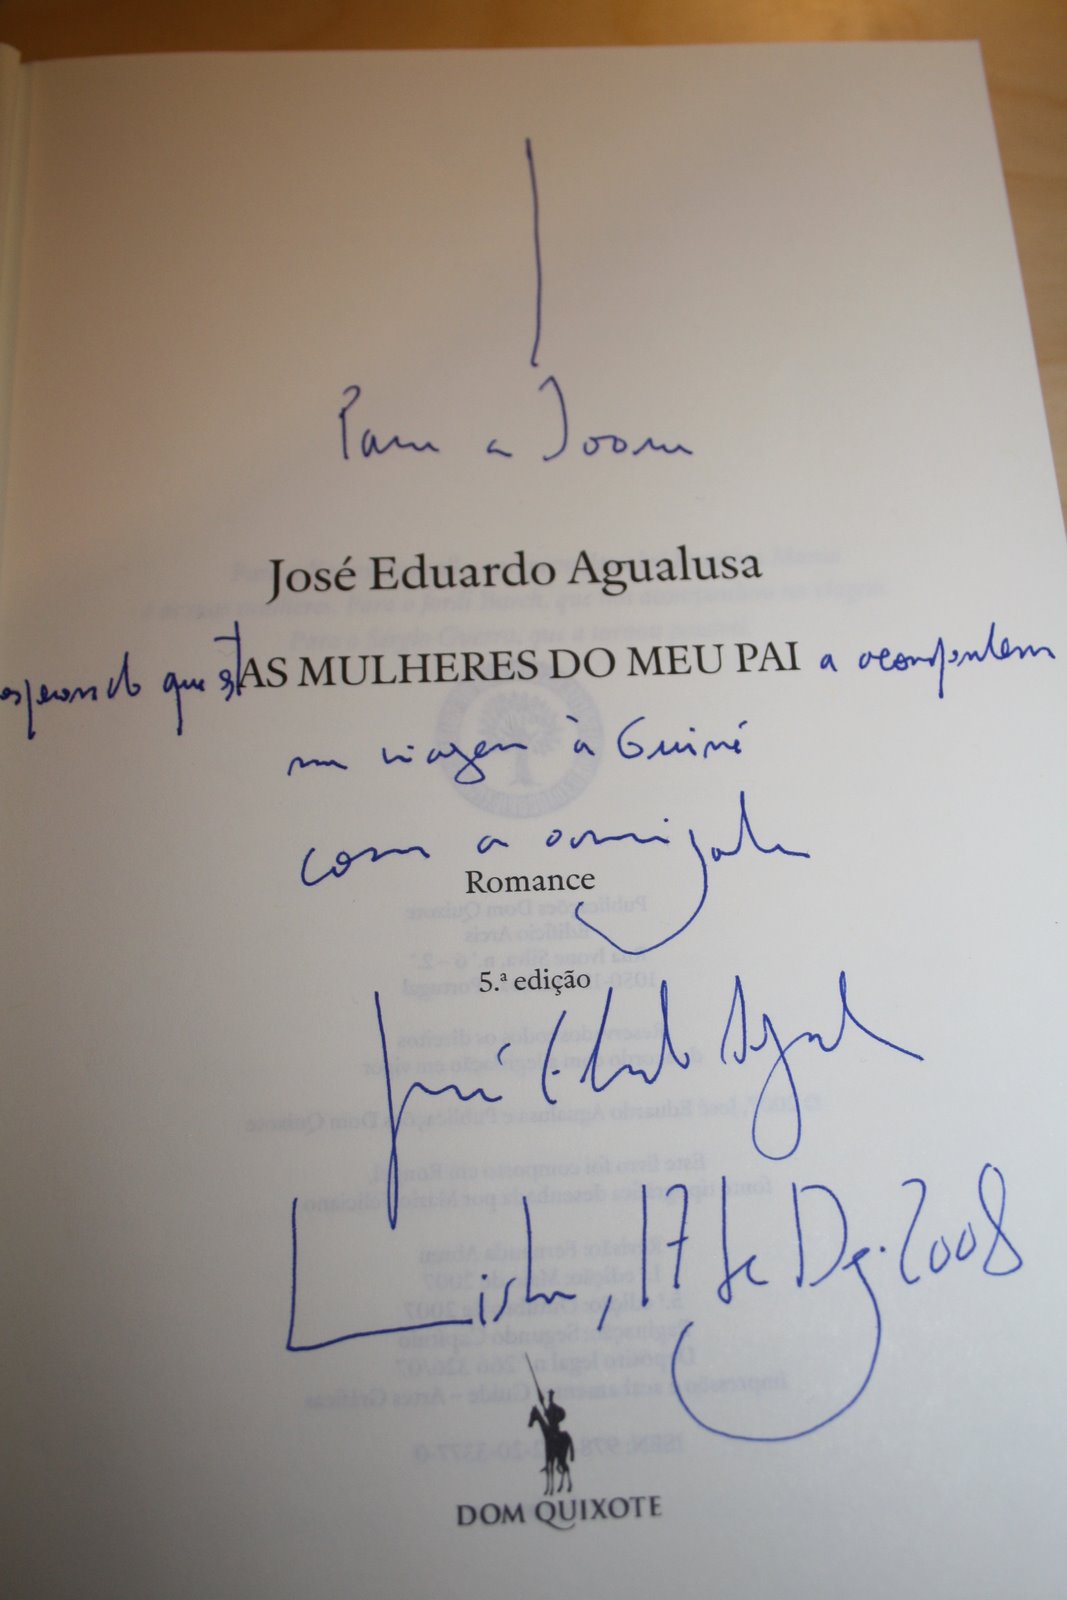 Para a Joana
José Eduardo Agualusa
esperando que estAS MULHERES DO MEU PAI a acompanhem
na viagem à Guiné
com a amizade
Romance
5.ª edição
José Eduardo Agualusa
Lisboa, 17 de Dez. 2008
DOM QUIXOTE